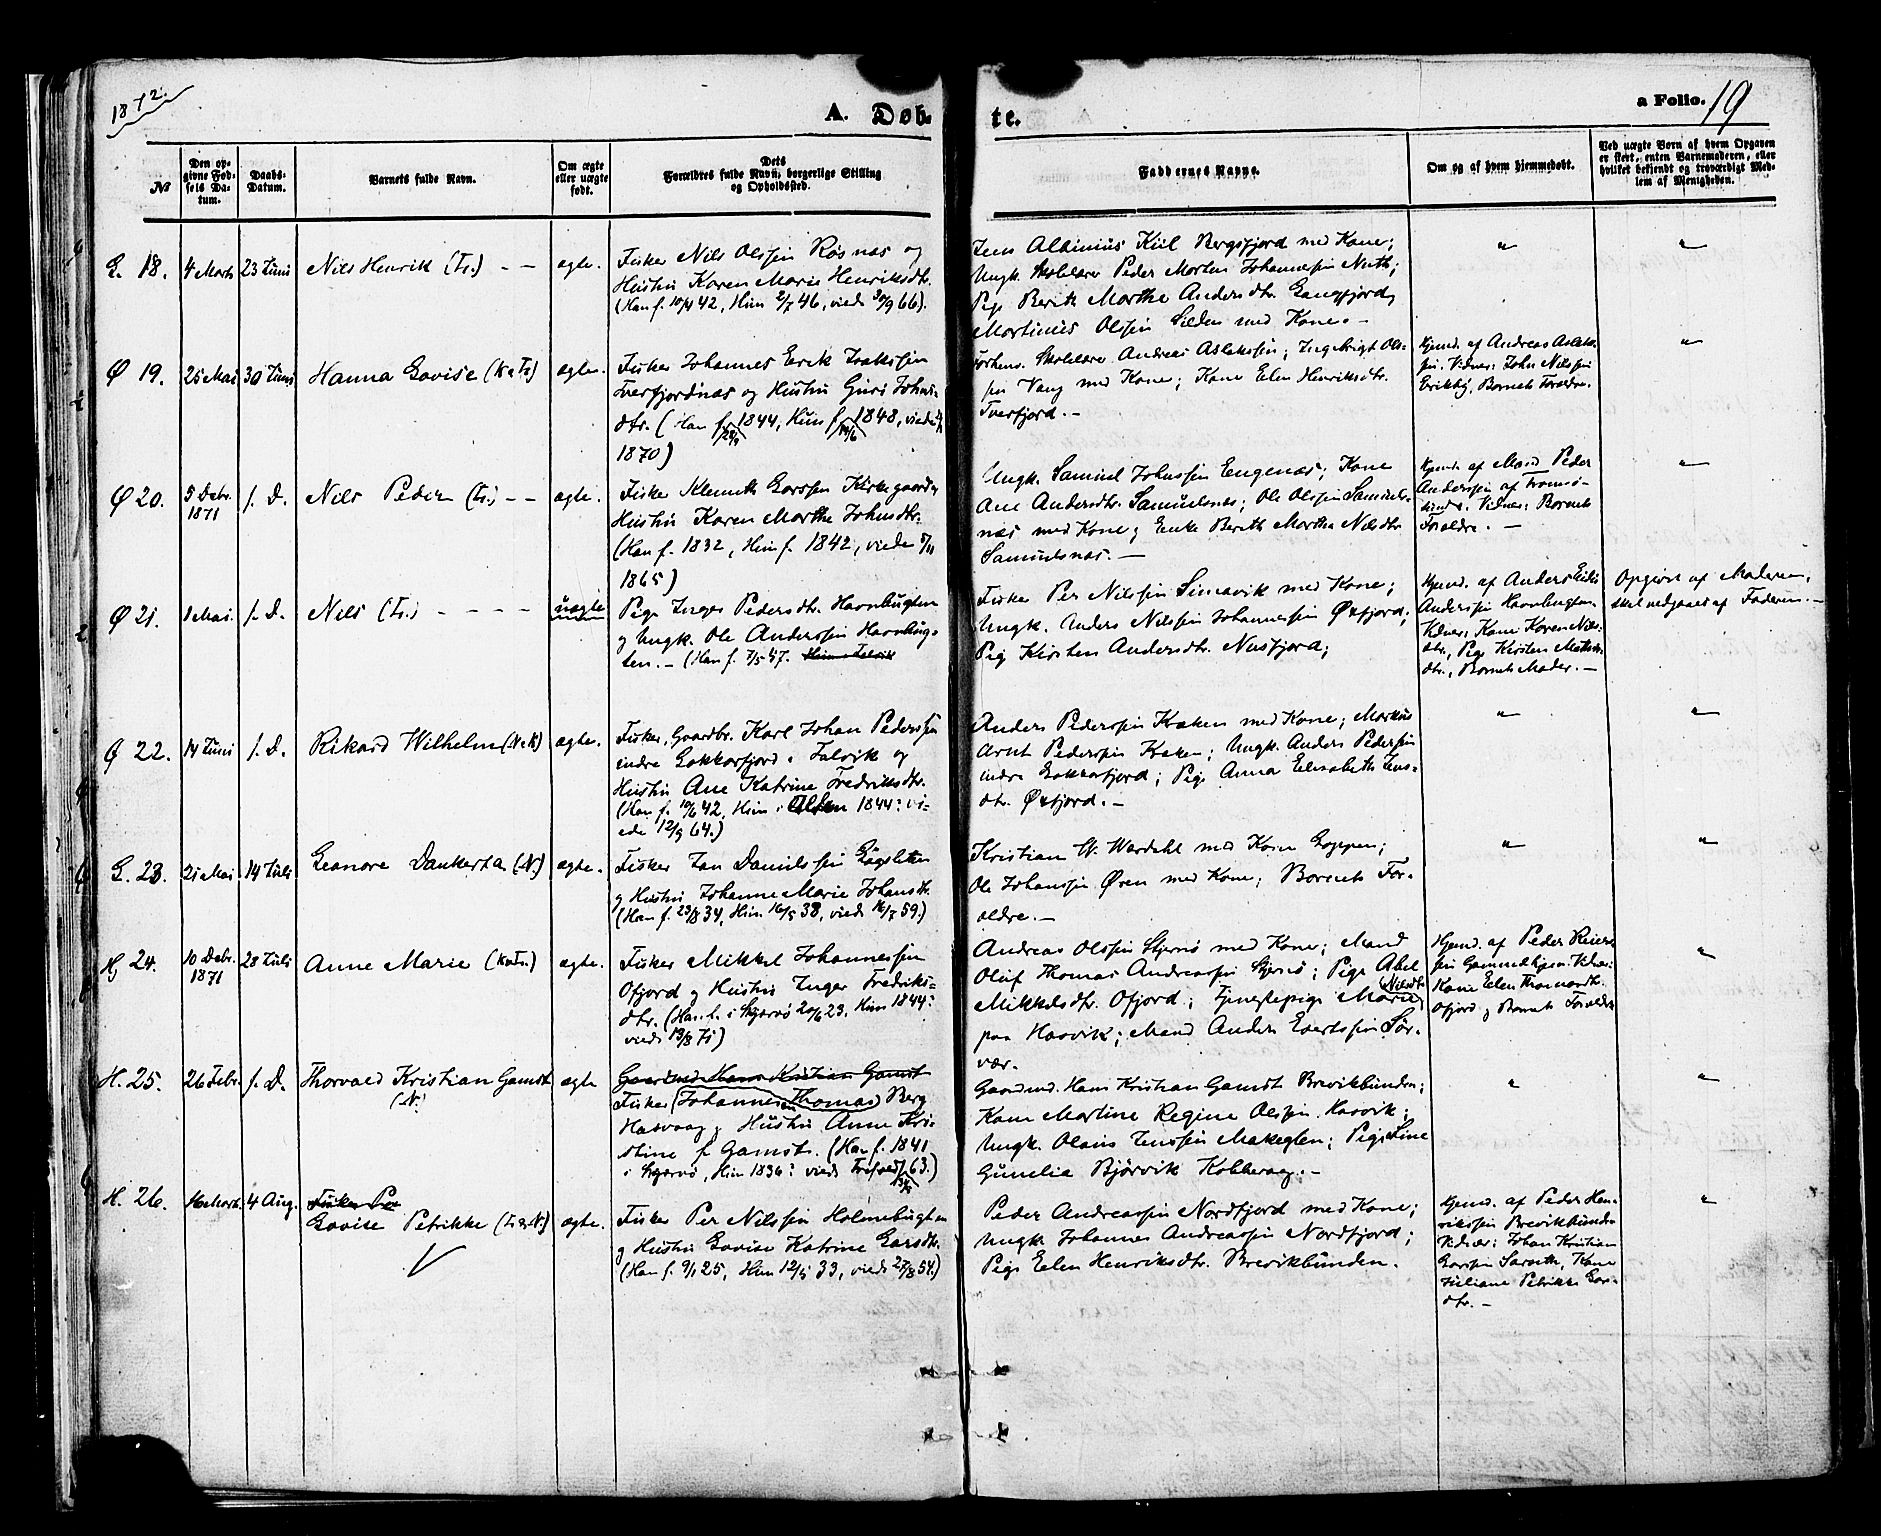 1872.
A. Døb-
te.
a Folio. 19
№
Den op-
givne Fød-
sels Da-
tum.
Daabs-
Datum.
Barnets fulde Navn.
Om ægte
eller uægte
født.
Dets
Forældres fulde Navn, borgerlige Stilling
og Opholdssted.
Faddernes Navne.
Om og af hvem hjemmedøbt.
Ved uægte Børn af hvem Opgaven
er skeet, enten Barnemoderen, eller
hvilket bekjendt og troværdigt Med-
lem af Menigheden.
18. 4 Marts 23 Juni Nils Henrik - - ægte.
Fisker Nils Olssen Røsnæs og
Hustru Karen Marie Henriksdtr.
(Han f. 10/4 42, Hun 2/7 46, viede 30/9 66).
Jens Albinius Kiil Bergsfjord med Kone;
Ungk. Skolelærer Peder Morten Johannessen Nuth;
Pige Berit Marthe Andersdtr. Langfjord,
Martinus Olssen Silden med Kone. -
Ø 19. 25 Mai 30 Juni Hanna Lovise ægte.
Fisker Johannes Erik Isakssen
Tverfjordnæs og Hustru Guri Johns-
dtr. (Han f. 1844, Hun f. 1848, viede
1870)
Forhenv. Skolelærer Andreas Aslaksen; Ingebrigt Ols-
sen Vang med Kone; Kone Elen Henriksdtr.
Tverfjord. -
Hjemd. af Andreas Aslak-
sen. Vidner: John Nilssen
Erikby, Barnets Forældre.
Ø 20. 5 Debr. 1871 s. D. Nils Peder - - ægte.
Fisker Klemeth Larssen Kirkegaard og
Hustru Karen Marthe Johnsdtr.
(Han f. 1832, Hun f. 1842, viede 5/11
1865)
Ungk. Samuel Johnssen Lengenæs; Kone
Ane Andersdtr. Samuelsnæs; Ole Olssen Samuels-
næs med Kone; Enke Berith Marthe Nilsdtr.
Samuelsnæs. -
Hjemd. af Mand Peder
Anderssen af Tromsø-
sundet. Vidner: Barnets
Forældre. -
Ø 21. 1 Mai. s. D. Nils - - - - uægte
Pige Inger Pedersdtr. Havnbugten
og Ungk. Ole Anderssen Havnbug-
ten. - (Han f. 7/5 47.
Fisker Per Nilssen Simavik med Kone;
Ungk. Anders Nilssen Johannessen Øxfjord;
Pige Kirsten Andersdtr. Nusfjord;
Hjemd. af Anders
Anderssen Havnbugten.
Vidner: Kone Karen Nils-
dtr., Pige Kirsten Mathis-
dtr., Barnets Moder. -
Opgivet af Moderen,
skal vedgaaes af Faderen. -
22. 14 Juni s. D. Rikard Wilhelm ægte.
Fisker, Gaardbr. Karl Johan Pederssen
indre Lokkarfjord i Talvik og
Hustru Ane Katrine Fredriksdtr.
(Han f. 10/6 42, Hun i Alten 1844? vi-
ede 12/9 64.)
Anders Pederssen Kraken med Kone; Markus
Arnt Pederssen Kraken; Ungk. Anders Pederssen
indre Lokkarfjord; Pige Anna Elisabeth Jens-
dtr. Øxfjord. -
23. 21 Mai 14 Juli Leonore Dankerta (N.) ægte.
Fisker Jan Danielssen Langsletten
og Hustru Johanne Marie Johansdtr.
(Han f. 23/8 34, Hun 16/5 38, viede 16/7 59.)
Kristian W. Wardahl med Kone Loppen;
Ole Johanssen Øren med Kone; Barnets For-
ældre. -
24. 10 Debr. 1871 28 Juli Anne Marie ægte.
Fisker Mikkel Johannessen
Ofjord og Hustru Inger Fredriks-
dtr. (Han f. i Skjervø 20/6 23, Hun 1844?
viede 13/8 71)
Andreas Olssen Stjernø med Kone; Mand
Oluf Thomas Andreassen Stjernø; Pige Abel
Mikkelsdtr. Ofjord; Tjenestepige Marie Nilsdtr.
paa Hasvik; Mand Anders Evertssen Sør-
vær.
Hjemd. af Peder Reiers-
sen Gammelhjem. Vidner:
Kone Elen Thomasdtr.
Ofjord og Barnets Forældre
H. 25. 26 Febr. s. D. Thorvald Kristian Gamst (N.) ægte
Gaardmd. Hans Kristian Gamst
Fisker (Johannes Thomas) Berg
Hasvaag og Hustru Anne Kri-
stine f. Gamst. (Han f. 1841
i Skjervø, Hun 1836? viede 63.)
Gaardmd. Hans Kristian Gamst Brevikbunden;
Kone Martine Regine Olssen Hasvik;
Ungk. Olaus Jenssen Makeglen; Pige Line
Gunelia Bjørvik Kobbevaag. -
H. 26. 4 Aug. Lovise Petrikke ægte.
Fisker Per Nilssen Holmebugten
og Hustru Lovise Katrine Larsdtr.
(Han f. 9/1 25, Hun 12/5 33, viede 27/8 54.)
Peder Andreassen Nordfjord med Kone;
Ungk. Johannes Andreassen Nordfjord;
Pige Elen Henriksdtr. Brevikbunden.
Hjemd. af Peder Hen-
rikssen Brevikbunden
Vidner: Johan Kristian
Larssen Kone
Juliane Petrikke Lars-
dtr. -